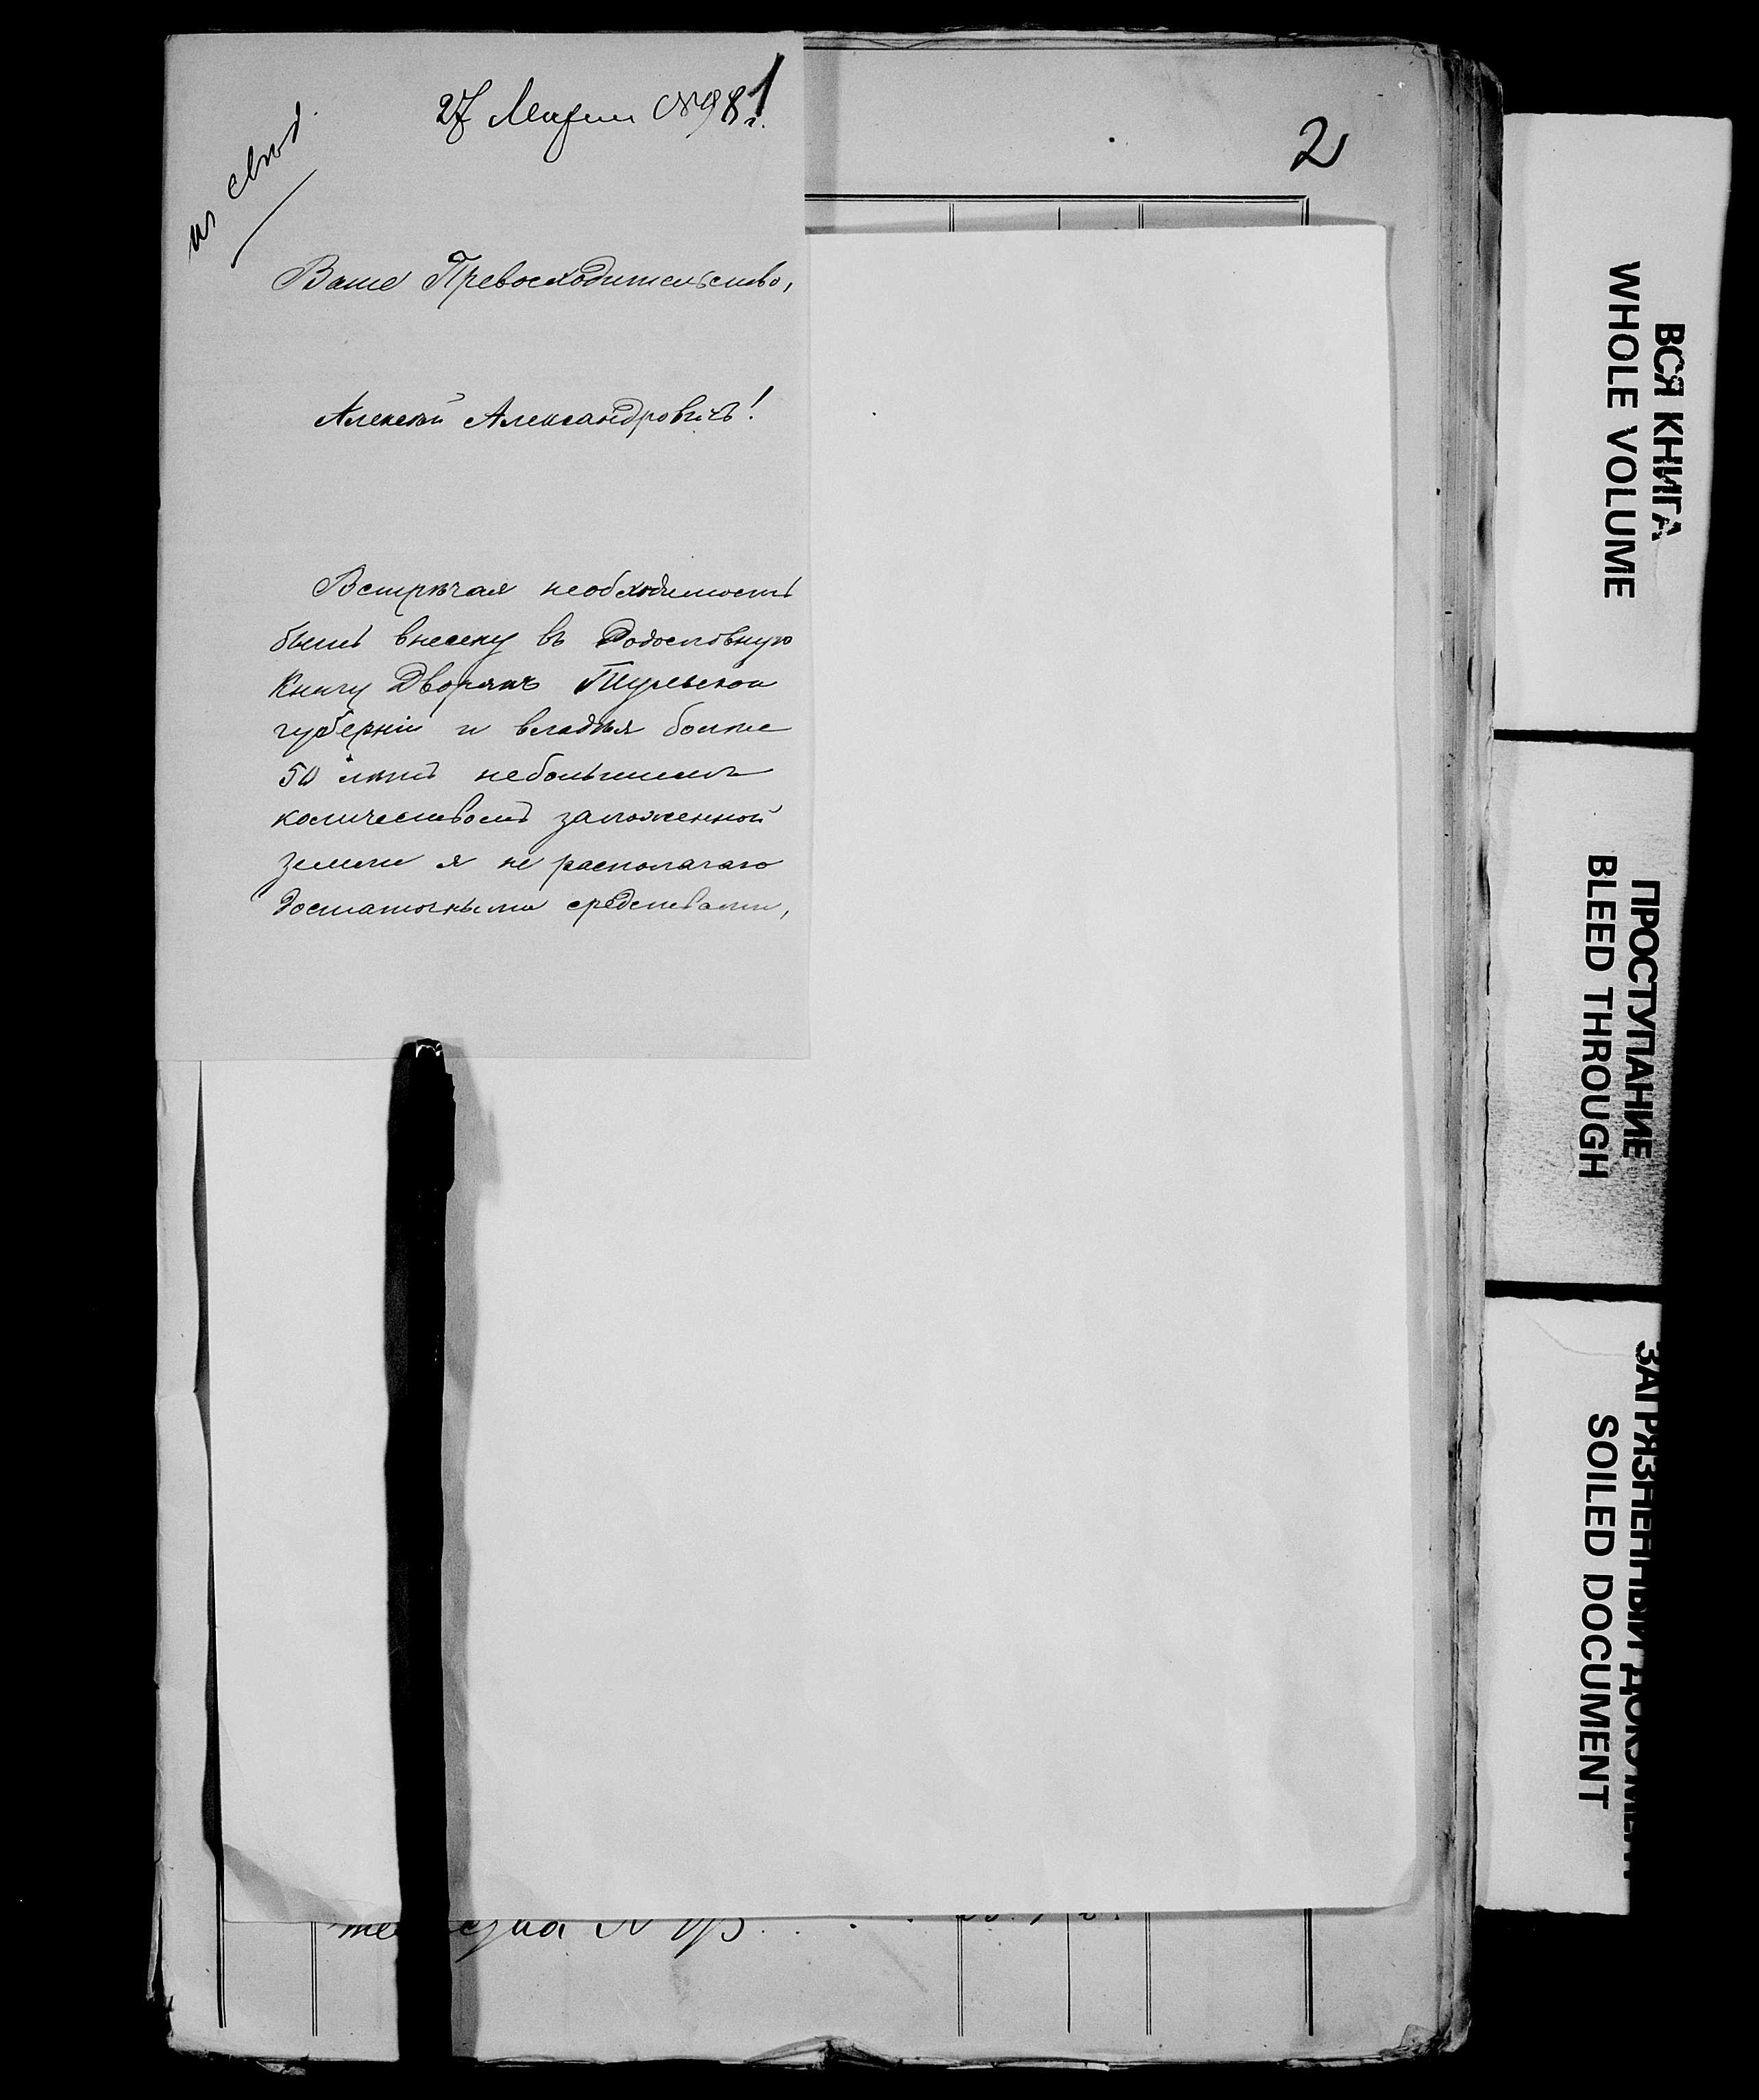 27 Марта 98 г.
1
2
Ваше Превосходительство,
Алексѣй Александровичъ!
Встрѣчая необходимость
быть внесену въ Родословную
Книгу Дворянъ Тульской
губерніи и владѣя болѣе
50 лѣтъ небольшимъ
количествомъ заложенной
земли я не располагаю
достаточными средствами,
ВСЯ КНИГА
WHOLE VOLUME
ПРОСТУПАНИЕ
BLEED THROUGH
ЗАГРЯЗНЕННЫЙ ДОКУМЕНТ
SOILED DOCUMENT